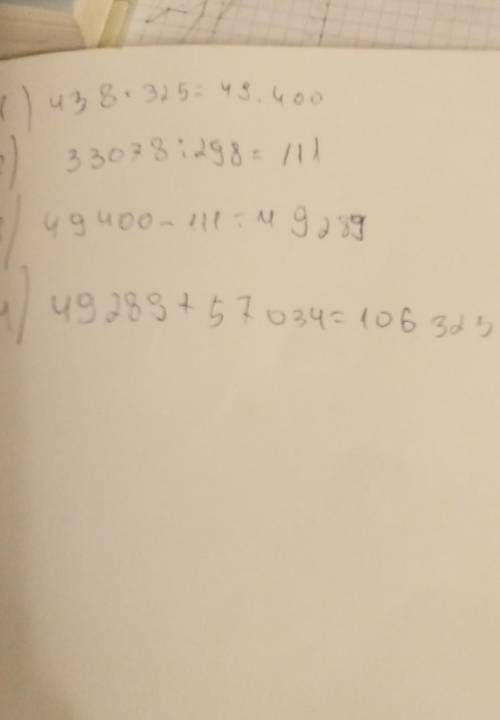 1) 438 · 325 = 49.400
2) 33078 : 298 = 111
3) 49400 - 111 = 49289
4) 49289 + 57034 = 106323